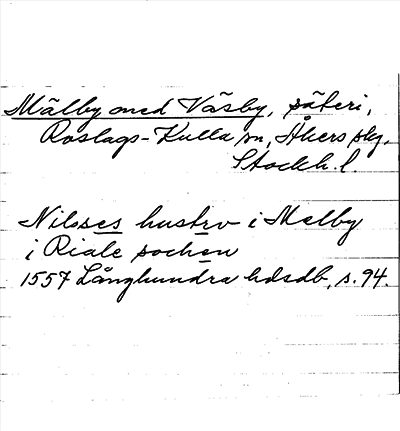 Mälby med Väsby, säteri,
Roslags-Kulla sn, Åkers skg,
Stockh. l.
Nilsses hustrv i Melby
i Riale sochen
1557 Långhundra hdsdb, s. 94.